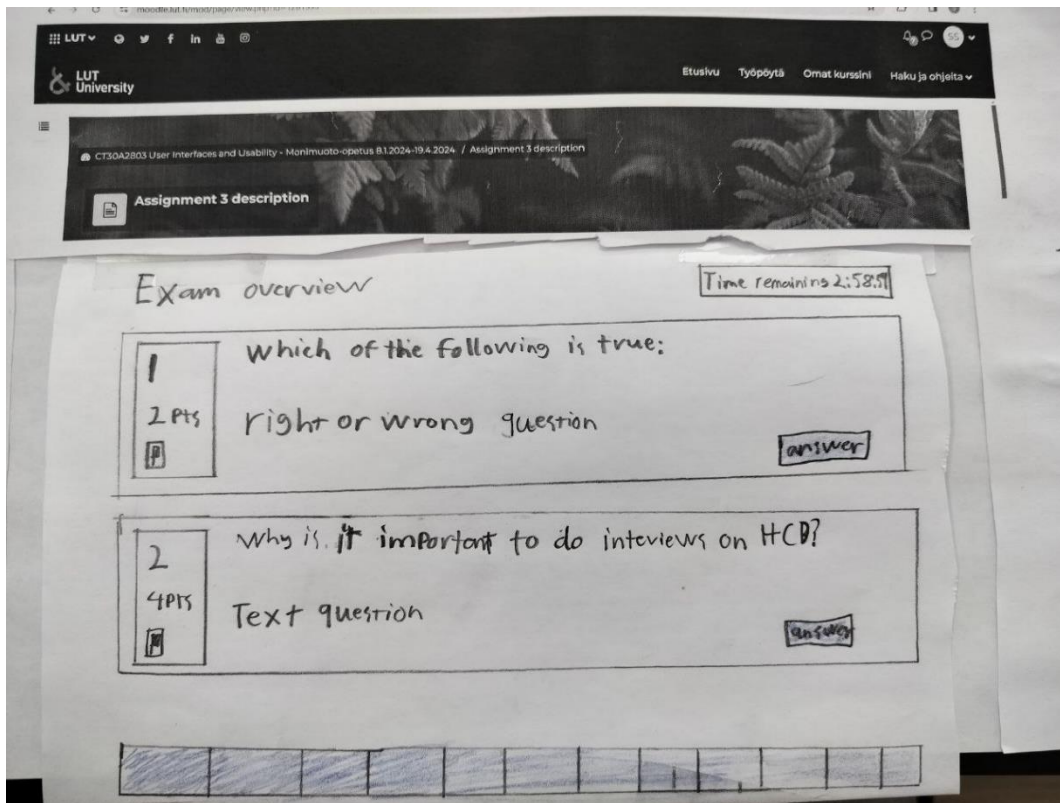 LUT
in
SS
LUT
University
Etusivu Työpöytä Omat kurssini Haku ja ohjeita
CT30A2803 User Interfaces and Usability - Monimuoto-opetus 8.1.2024-19.4.2024 / Assignment 3 description
Assignment 3 description
Exam overview
Time remaining 2:58:
1
Which of the following is true:
2 Pts
right or wrong question
answer
2
Why is it important to do inteviews on HCD?
4 Pts
Text question
answer